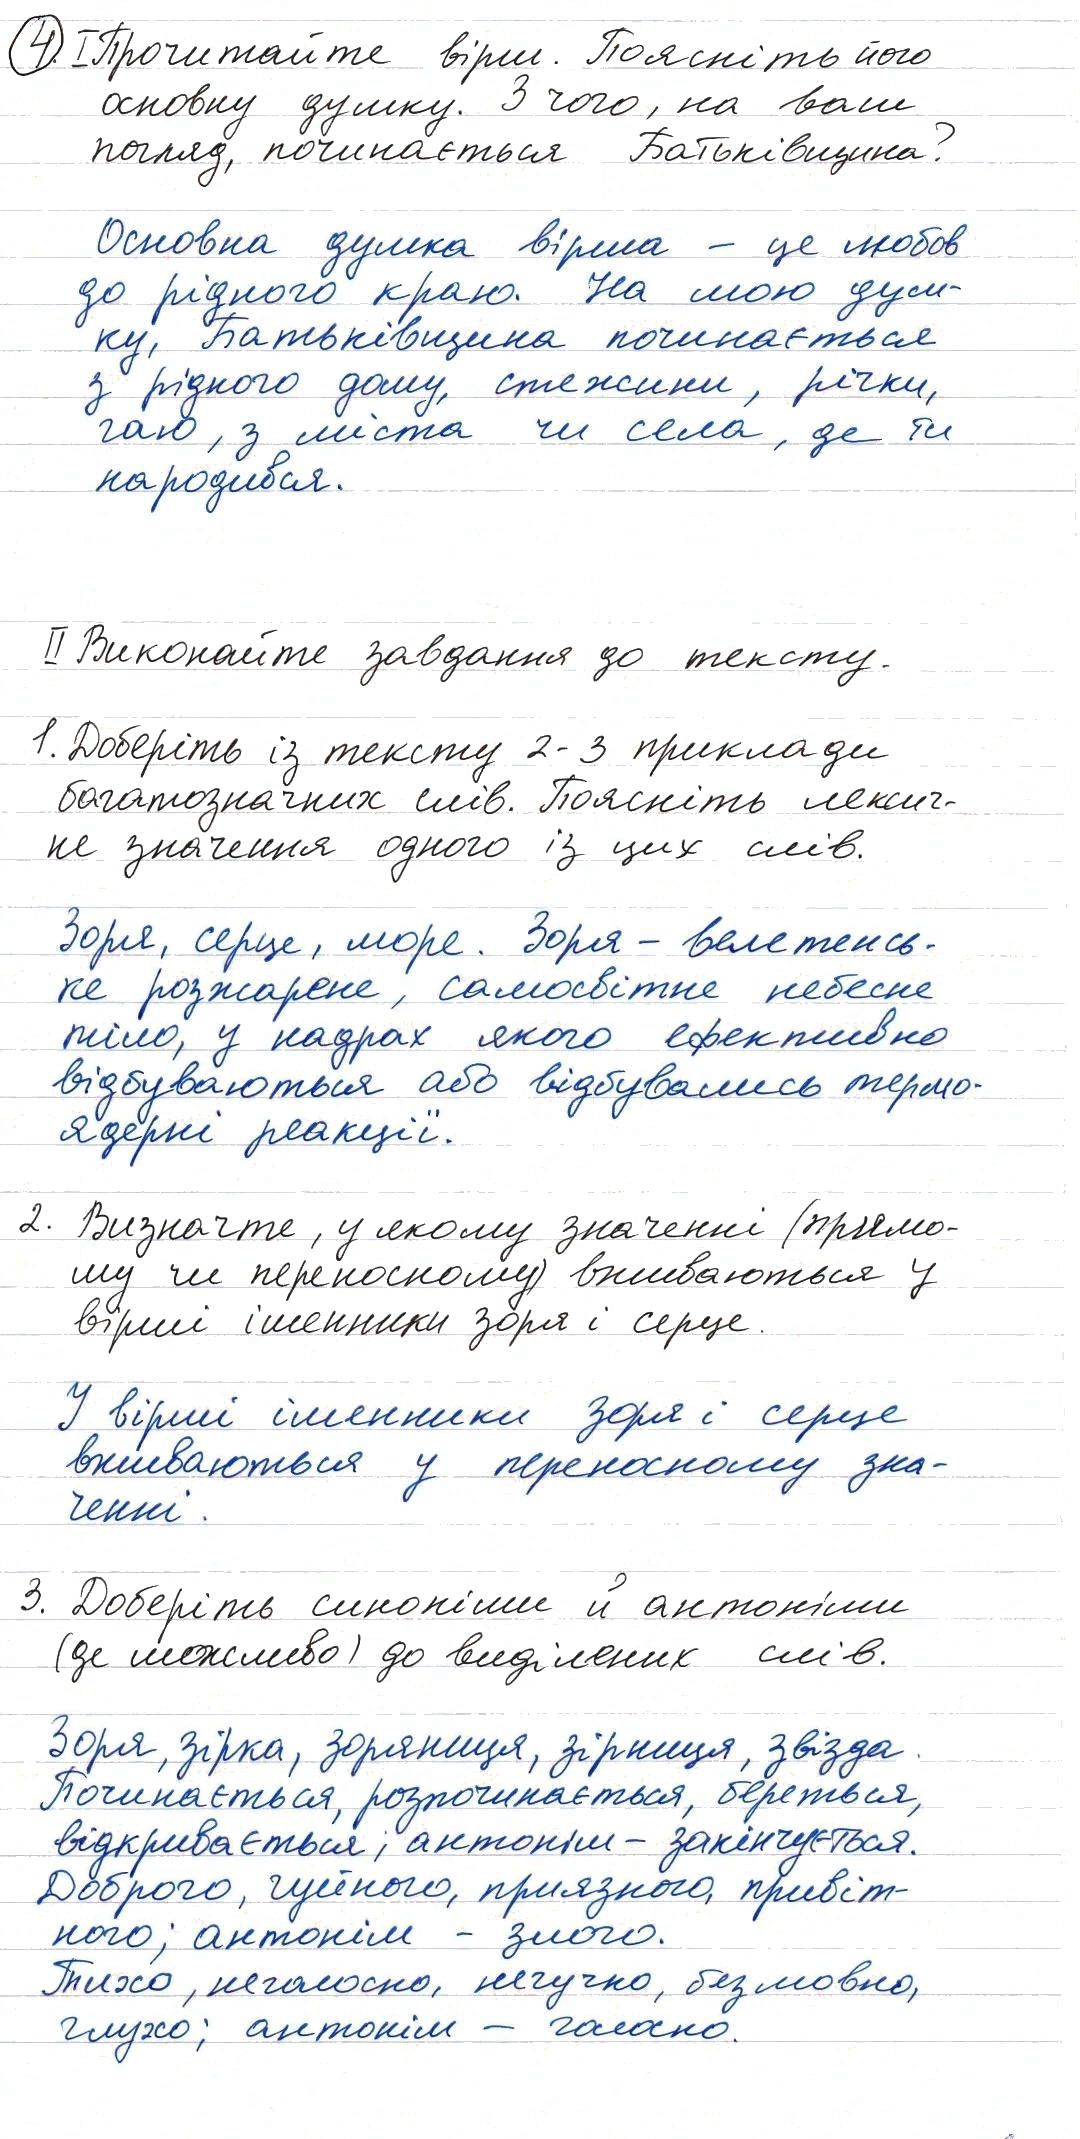 4. I Прочитайте вірш. Поясніть його
основну думку. З чого, на ваш
погляд, починається Батьківщина?
Основна думка вірша – це любов
до рідного краю. На мою дум-
ку, Батьківщина починається
з рідного дому, стежини, річки,
гаю, з міста чи села, де ти
народився.
II Виконайте завдання до тексту.
1. Доберіть із тексту 2-3 приклади
багатозначних слів. Поясніть лексич-
не значення одного із цих слів.
Зоря, серце, море. Зоря – велетенсь-
ке розжарене, самосвітне небесне
тіло, у надрах якого ефективно
відбуваються або відбувались термо-
ядерні реакції.
2. Визначте, у якому значенні (прямо-
му чи переносному) вживаються у
вірші іменники зоря і серце.
У вірші іменники зоря і серце
вживаються у переносному зна-
ченні.
3. Доберіть синоніми й антоніми
(де можливо) до виділених слів.
Зоря, зірка, зоряниця, зірниця, звізда.
Починається, розпочинається, береться,
відкривається; антонім – закінчується.
Доброго, чуйного, приязного, привіт-
ного; антонім – злого.
Тихо, неголосно, негучно, безмовно,
глухо; антонім – голосно.